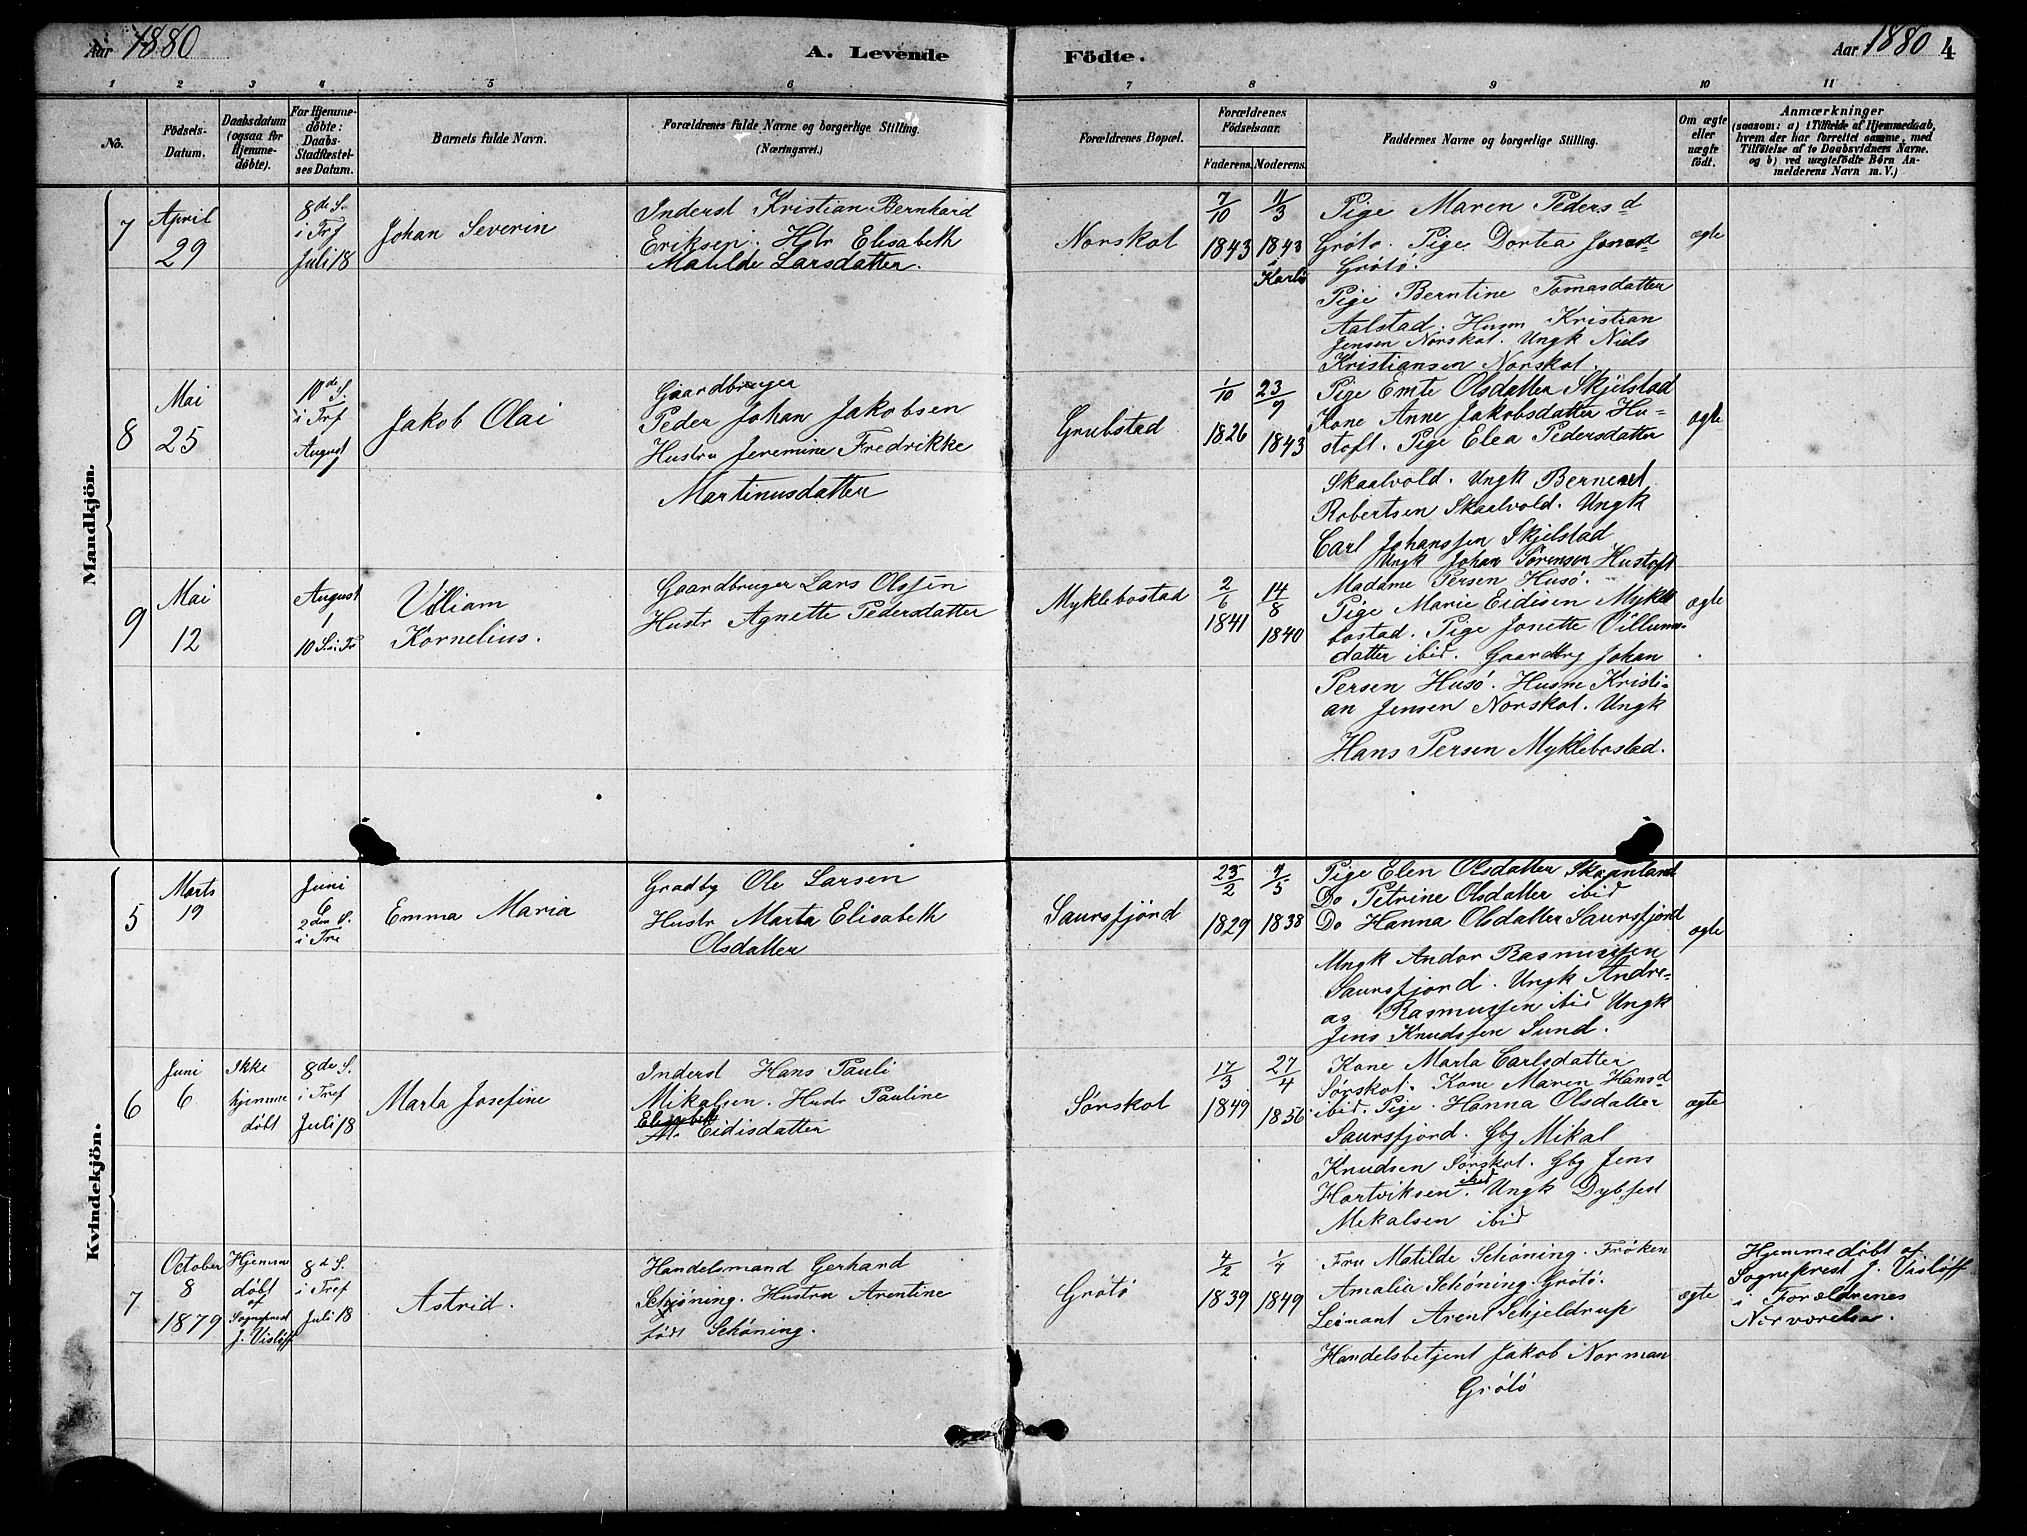 Aar 1880
A. Levende Födte.
Aar 1880 4
1 2 3 4 5 6 7 8 9 10 11
No.
Födsels-Datum.
Daabsdatum (ogsaa for Hjemme-döbte).
For Hjemme-döbte: Daabs-Stadfæstel-ses Datum.
Barnets fulde Navn.
Forældrenes fulde Navne og borgerlige Stilling.
(Næringsvei.)
Forældrenes Bopæl.
Forældrenes Födselsaar.
Faderens. Moderens.
Faddernes Navne og borgerlige Stilling.
Om ægte eller uægte födt.
Anmærkninger
(saasom: a) i Tilfælde af Hjemmedaab, hvem der har forrettet samme, med Tilföielse af to Daabsvidners Navne, og b) ved uægtefödte Börn An-melderens Navn m.V.)
Mandkjön.
7
April
29
8de S.
i Tref
Juli 18
Johan Severin
Inderst Kristian Bernhard
Eriksen. Hstr Elisabeth
Matilde Larsdatter.
Norskot
7/10
1843
11/3
1843
i
Karlsö
Pige Maren Pedersd
Grötö. Pige Dortea Jonasd
Grötö.
Pige Berntine Tomasdatter
Aalstad. Husm Kristian
Jensen Norskot. Ungk Niels
Kristiansen Norskot.
ægte
8
Mai
25
10de S.
i Tref
August
1
Jakob Olai
Gaardbruger
Peder Johan Jakobsen
Hustru Jeremine Fredrikke
Martinusdatter
Grubstad
1/10
1826
23/9
1843
Pige Emte Olsdatter Skjelstad
Kone Anne Jakobsdatter Hu-
stoft. Pige Elea Pedersdatter
Skaalvold. Ungk
Robertsen Skaalvold. Ungk
Carl Johanssen Skjelstad
Ungk Johan Sörensen Hustoft
ægte
9
Mai
12
August
1
10 S. i Tr
Villiam
Kornelius.
Gaardbruger Lars Olssen
Hustr Agnette Pedersdatter
Myklebostad
2/6
1841
14/8
1840
Madame Persen Husö.
Pige Marie Eidisen Mykle
bostad. Pige Jonette Villums-
datter ibid. Gaardbrg Johan
Persen Husö. Husm Kristi-
an Jensen Norskot. Ungk
Hans Persen Myklebostad.
ægte
Kvindekjön.
5
Marts
19
Juni
6
2den S.
i Tre
Emma Maria
Grdbg Ole Larsen
Hustr Marta Elisabeth
Olsdatter
Saursfjörd
23/2
1829
7/5
1838
Pige Elen Olsdatter Skaanland
Do Petrine Olsdatter ibid
Do Hanna Olsdatter Saursfjord
Ungk Andor Rasmussen
Saursfjord. Ungk Andre-
as Rasmussen ibid Ungk
Jens Knudssen Sund.
ægte
6
Juni
6
Ikke
hjemme
döbt
8de S.
i Tref
Juli 18
Marta Josefine
Inderst Hans Pauli
Mikalsen. Hustr Pauline
Elisabeth
Eidisdatter
Sörskot
17/3
1849
27/4
1856
Kone Marta Carlsdatter
Sörskot. Kone Maren Hansd
ibid. Pige Hanna Olsdatter
Saursfjord. Gbg Mikal
Knudsen Sörskot. Gbg Jens
Hartviksen ibid. Ungk Dybfest
Mikalsen ibid
ægte
7
October
8
1879
Hjemme
döbt
af
Sogneprest
J. Vislöff
8de S.
i Tref
Juli 18
Astrid.
Handelsmand Gerhard
Schöning. Hustru Arentine
född Schöning.
Grötö
4/2
1839
1/4
1849
Fru Matilde Schöning. Fröken
Amalia Schöning Grötö.
Leönant Arent Schjeldrup
Handelsbetjent Jakob Norman
Grötö
ægte
Hjemmedöbt af
Sogneprest J. Vislöff
i Forældrenes
Nærværelse.